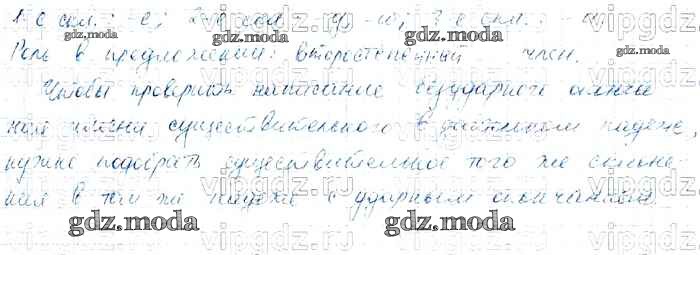 1-е скл.: -е; 2-е скл.: -у, -ю; 3-е скл.: -и
Роль в предложении: второстепенный член.
Чтобы проверить написание безударного оконча
ния имени существительного в дательном падеже,
нужно подобрать существительное того же склоне-
ния в том же падеже с ударным окончанием.
gdz.moda
gdz.moda
gdz.moda
gdz.moda
gdz.moda
vipgdz.ru